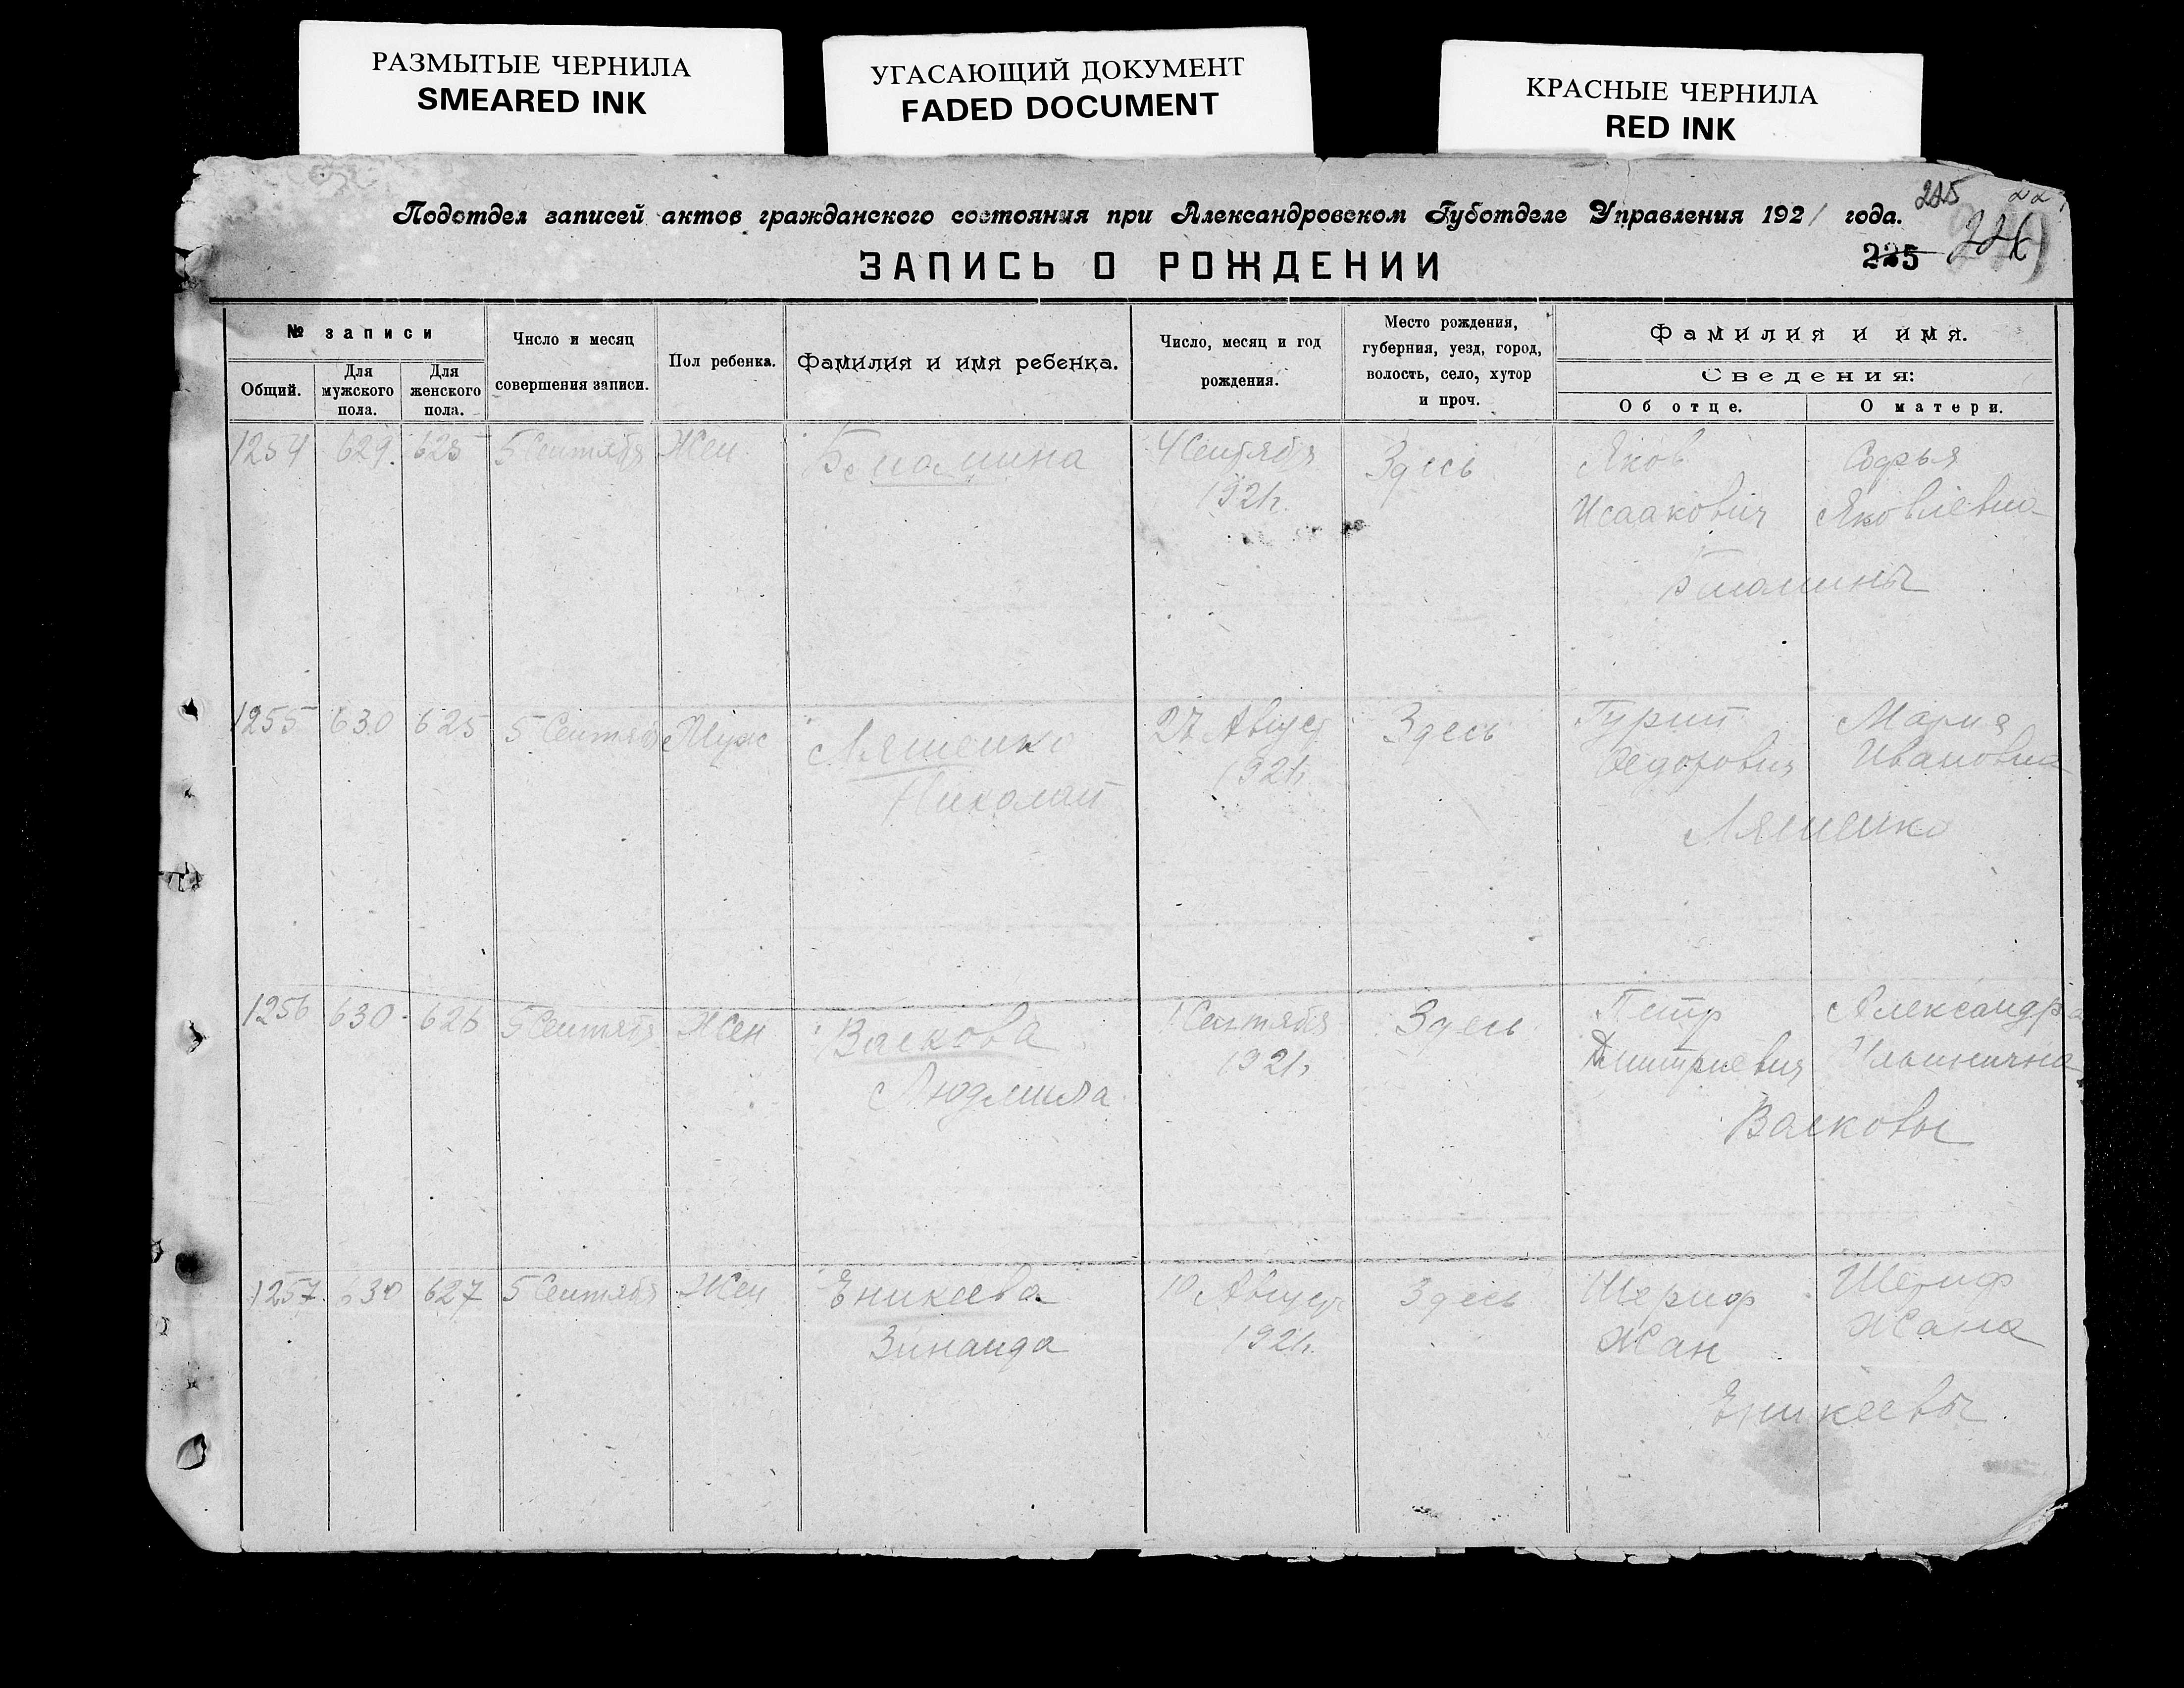 РАЗМЫТЫЕ ЧЕРНИЛА
SMEARED INK
УГАСАЮЩИЙ ДОКУМЕНТ
FADED DOCUMENT
КРАСНЫЕ ЧЕРНИЛА
RED INK
225
Подотдел записей актов гражданского состояния при Александровском Губотделе Управления 1921 года.
ЗАПИСЬ О РОЖДЕНИИ
225 226
№ записи
Общий.
Для мужского пола.
Для женского пола.
Число и месяц совершения записи.
Пол ребенка.
Фамилия и имя ребенка.
Число, месяц и год рождения.
Место рождения, губерния, уезд, город, волость, село, хутор и проч.
Фамилия и имя.
Сведения:
Об отце.
О матери.
1254 629. 625 5 Сентября Жен 4 Сентября Здесь Яков Софья
1921г. Исаакович Яковлевна
1255 630 625 5 Сентяб Муж Ляшенко 27 Август Здесь Гурий Мария
Николай 1921г. Федорович Ивановна
Ляшенко
1256 630 626 5 Сентяб Жен Васкова 1 Сентября Здесь Петр Александра
Людмила 1921г. Дмитриевич Ильинична
Васковы
1257 630 627 5 Сентяб Жен Еникеева 10 Август Здесь Шериф Шериф
Зинаида 1921г. Жан Жана
Еникеевы